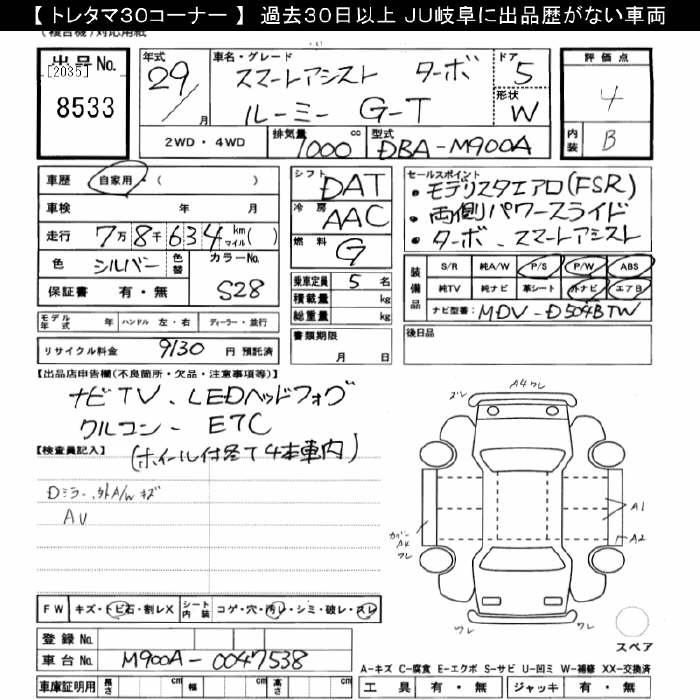 【 トレタマ30コーナー 】 過去30日以上 JU岐阜に出品歴がない車両
(複合機)対応用紙
出品No.
[2035]
8533
年式
29/
月
車名・グレード
スマートアシスト ターボ
ルーミー G-T
ドア
5
形状
W
評価点
4
内装
B
2WD・4WD
排気量
1000
cc
型式
DBA-M900A
車歴 自家用・( )
車検 年 月
走行 7万8千634 km マイル( )
色 シルバー 色替 カラーNo. S28
保証書 有・無
シフト DAT
冷房 AAC
燃料 G
乗車定員 5 名
積載量 kg
総重量 kg
セールスポイント
・モデリスタエアロ(FSR)
・両側パワースライド
・ターボ、スマートアシスト
装備品
S/R 純A/W P/S P/W ABS
純TV 純ナビ 革シート 外ナビ エアB
ナビ型番: MDV-D504BTW
モデル年式 年 ハンドル 左・右 ディーラー・並行
リサイクル料金 9130 円 預託済
書類期限
月 日
後日品
【出品店申告欄(不良箇所・欠品・注意事項等)】
ナビTV、LEDヘッドフォグ
クルコン、ETC
(ホイール付 4本車内)
【検査員記入】
Dミラー、外A/W キズ
AU
ズレ
A4 ワレ
A1
A2
カバー
A4
ワレ
ワレ
ワレ
スペア
FW キズ・トビ石・割レX シート内装 コゲ・穴・汚レ・シミ・破レ・スレ
登録No.
車台No. M900A-0047538
車庫証明用 長さ cm 幅 cm 高さ cm
A-キズ C-腐食 E-エクボ S-サビ U-凹ミ W-補修 XX-交換済
工具 有・無 ジャッキ 有・無